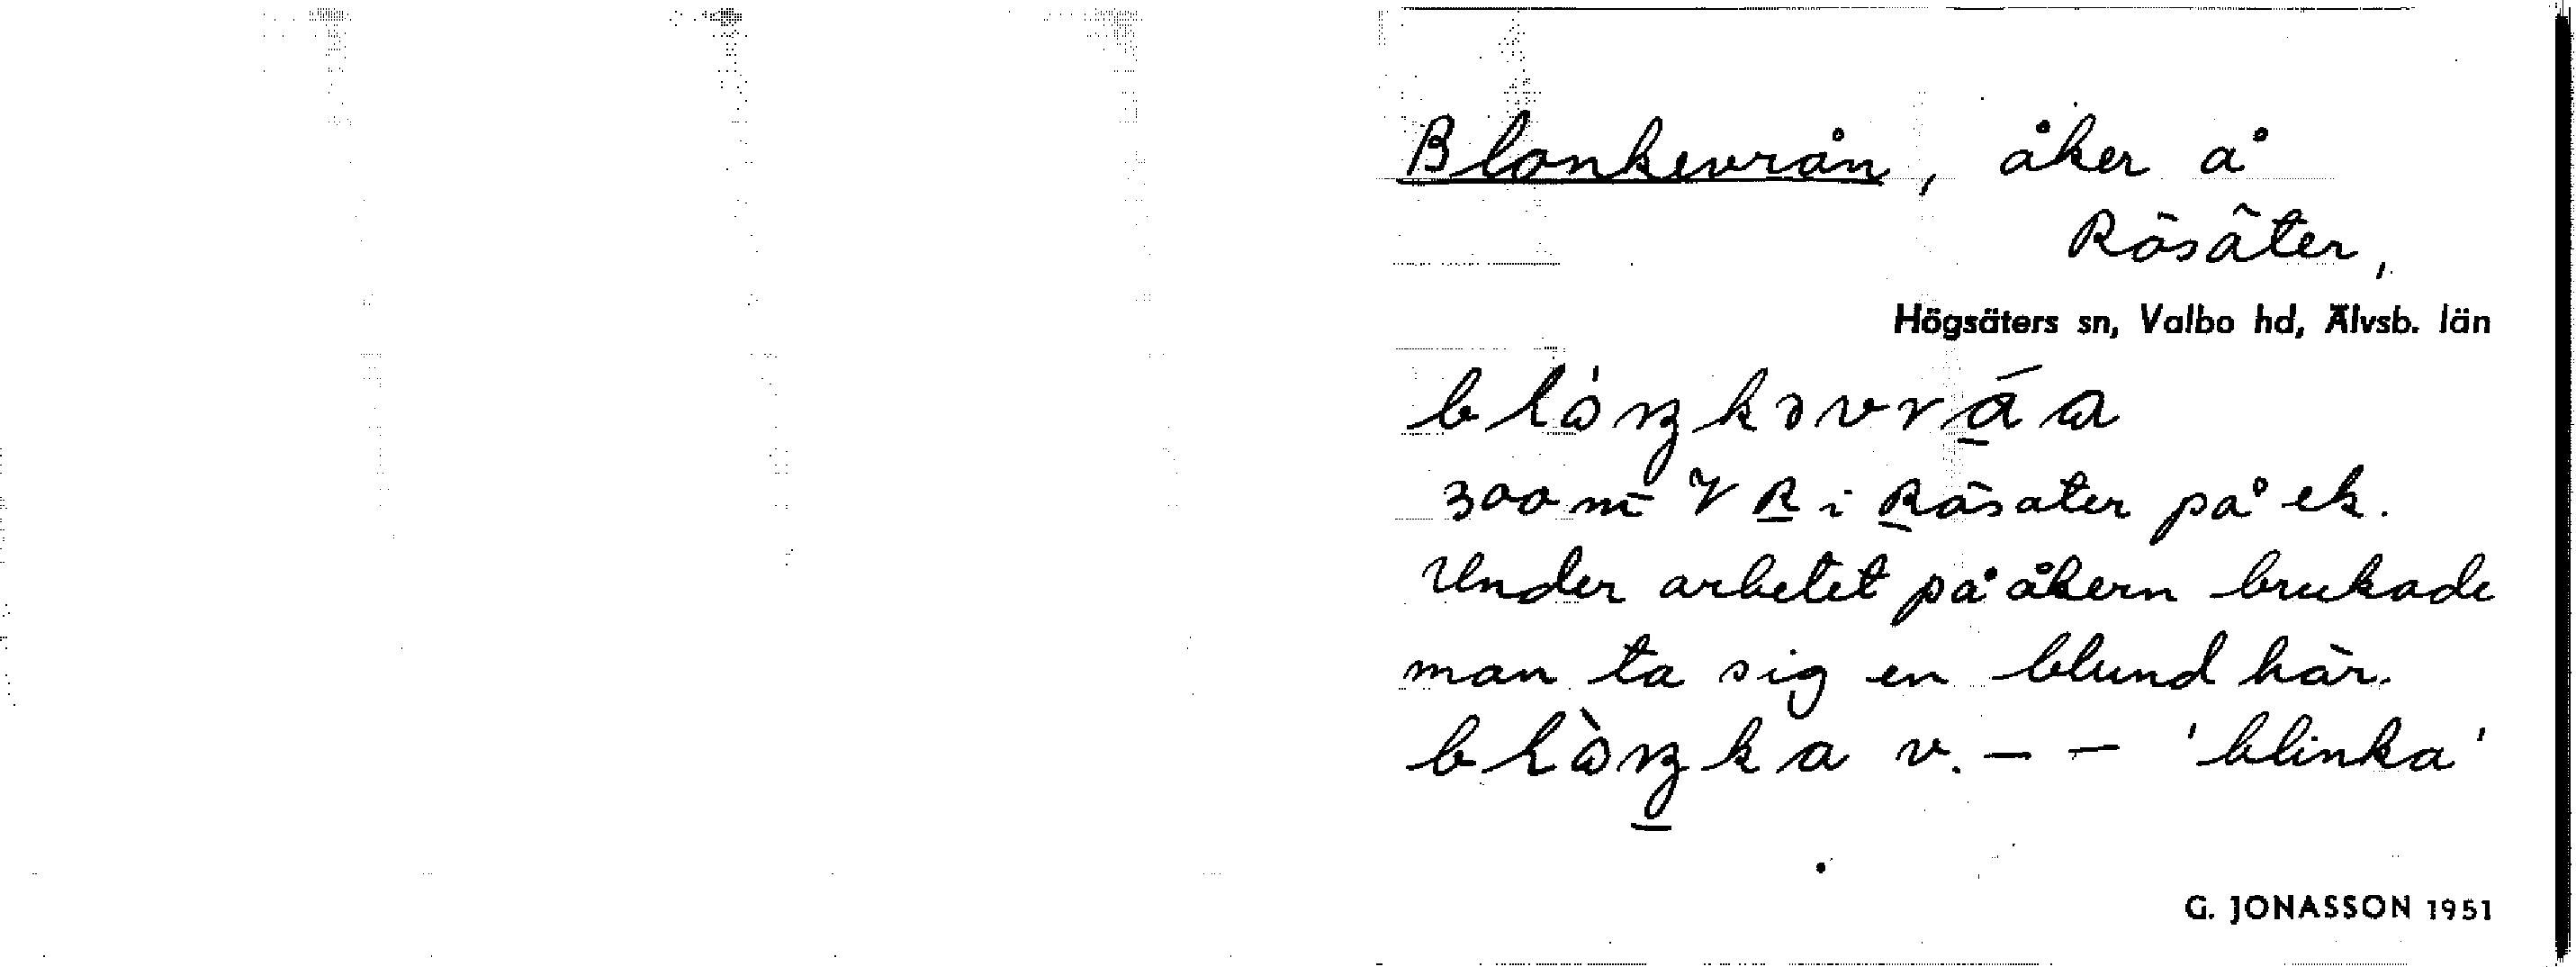 Blonkevrån, åker å
Rösäter,
Högsäters sn, Valbo hd, Älvsb. län
300 m V R i Rösäter på ek.
Under arbetet på åkern brukade
man ta sig en blund här.
v. – – 'blinka'
G. JONASSON 1951